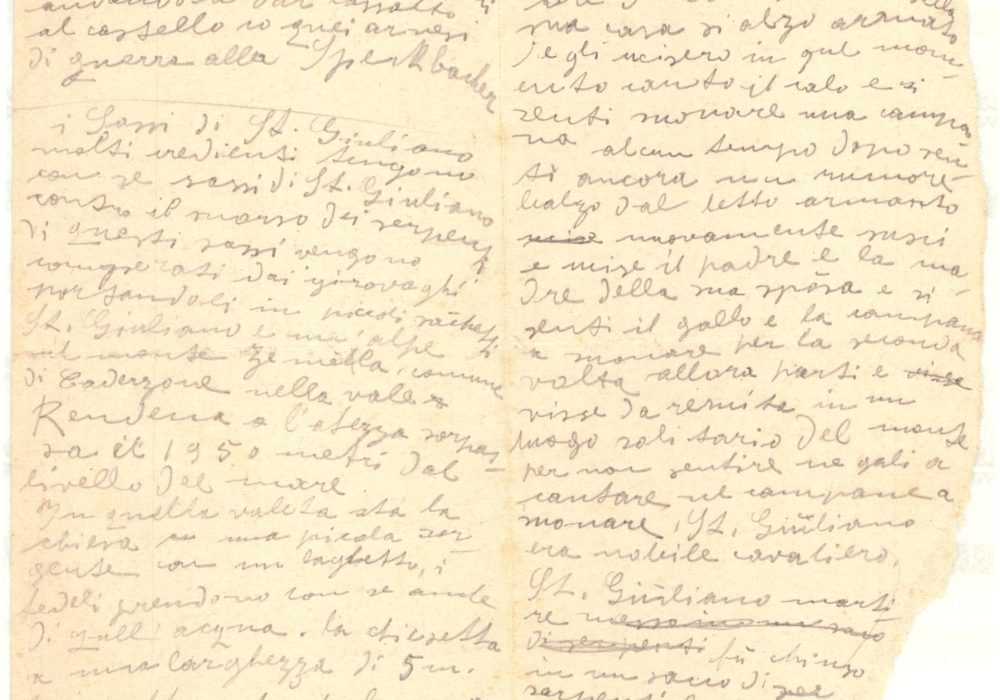 andando a dar l'assalto
al castello co quei arnesi
di guerra alla Speckbacher
i Sassi di St. Giuliano
molti credienti tengono
con se sassi di St. Giuliano
contro il morso dei serpenti
di questi sassi vengono
comperati dai girovaghi
portandoli in piccoli sacheti
St. Giuliano e un' alpe
sul monte Zemella, comune
di Caderzone nella vale
Rendena a l'atezza sorpas-
sa il 1950 metri dal
livello del mare
In quella valeta sta la
chiesa e una picola sor-
gente con un laghetto, i
fedeli prendono con se anche
di quell' acqua. la chiesetta
a una larghezza di 5 m.
sua casa si alzo armato
e gli ucisero in quel mom-
ento canto il galo e si
senti suonare una campa-
na alcun tempo dopo sen-
ti ancora un rumore
balzo dal letto armato
ucise nuovamente susci
e ucise il padre e la ma-
dre della sua spósa e si
senti il gallo e la campana
a suonare per la seconda
volta allora parti e visse
visse da remita in un
luogo solitario del monte
per non sentire ne gali a
cantare ne campane a
suonare, St. Giüliano
era nobile cavaliero,
St. Giüliano marti
re messo in un saco
di serpenti fü chiuso
in un saco di ser